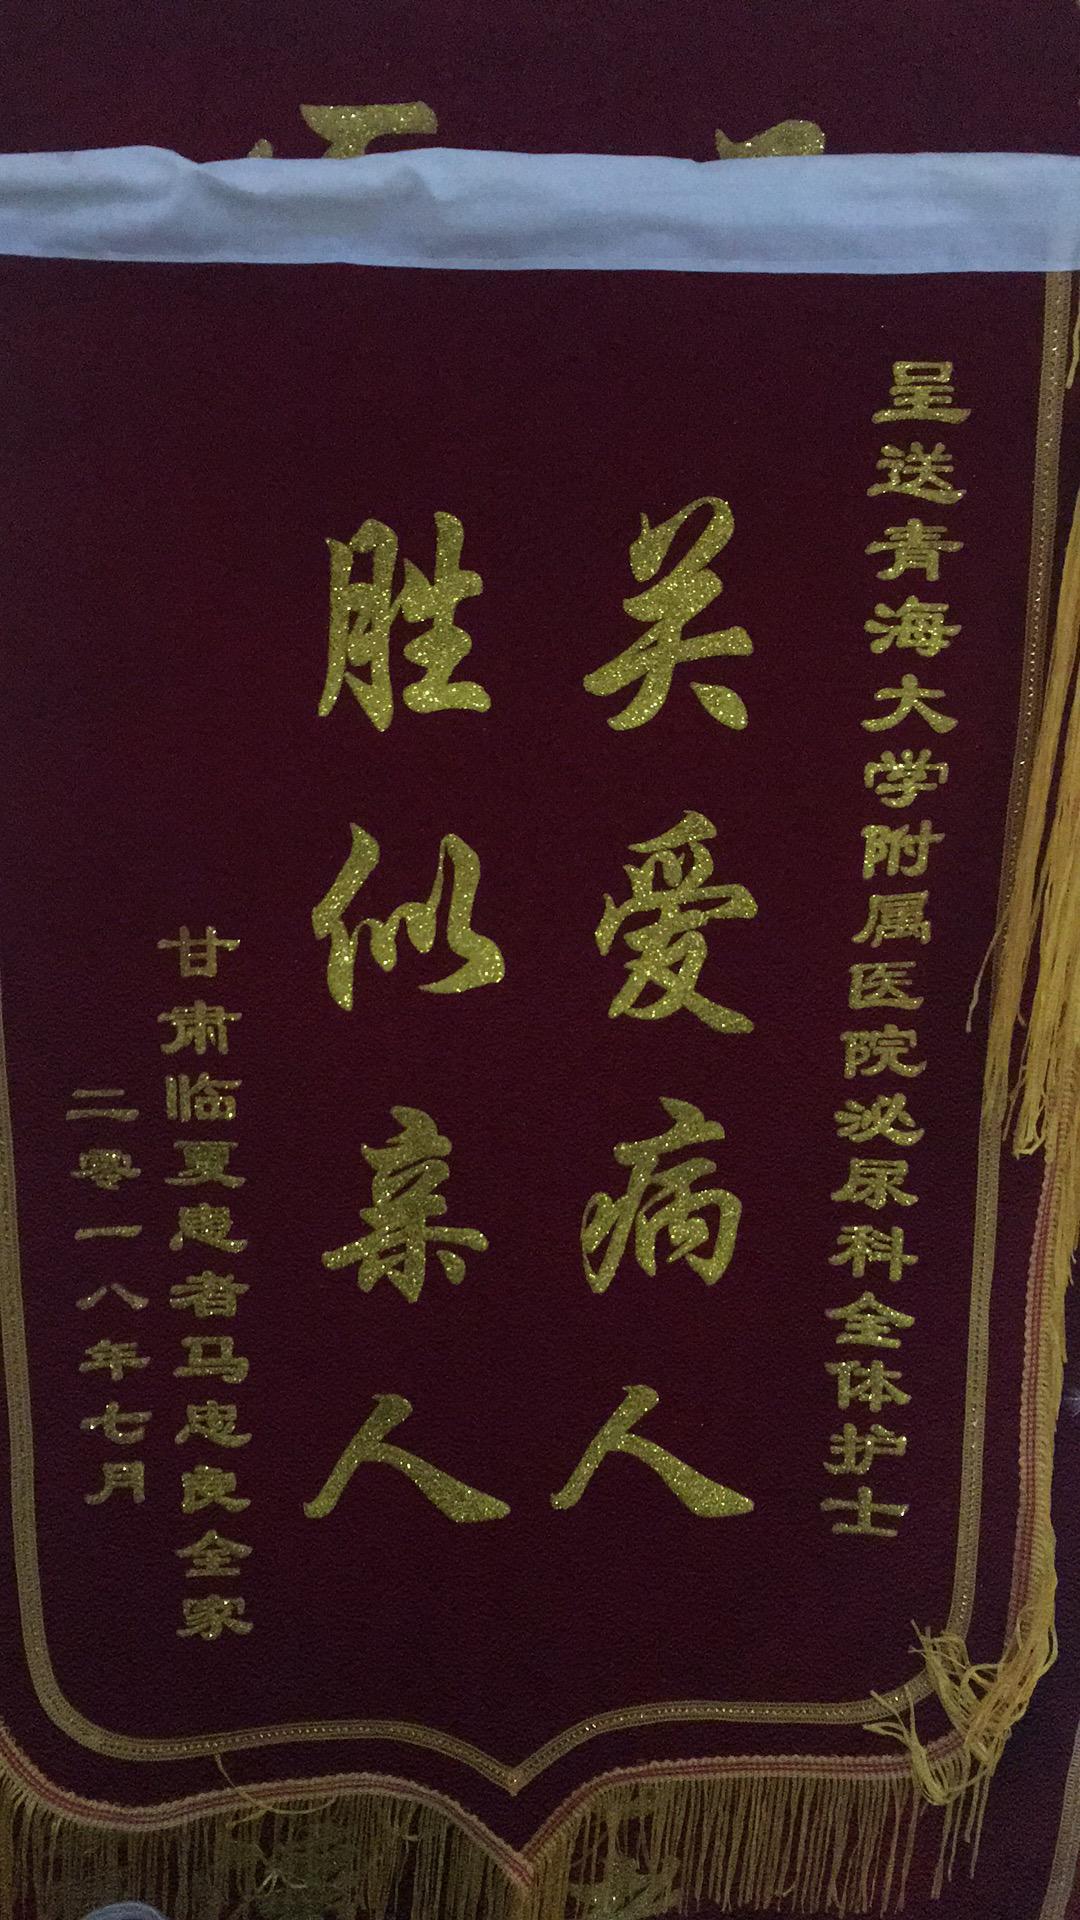 呈送青海大学附属医院泌尿科全体护士
关爱病人
胜似亲人
甘肃临夏患者马忠良全家
二零一八年七月